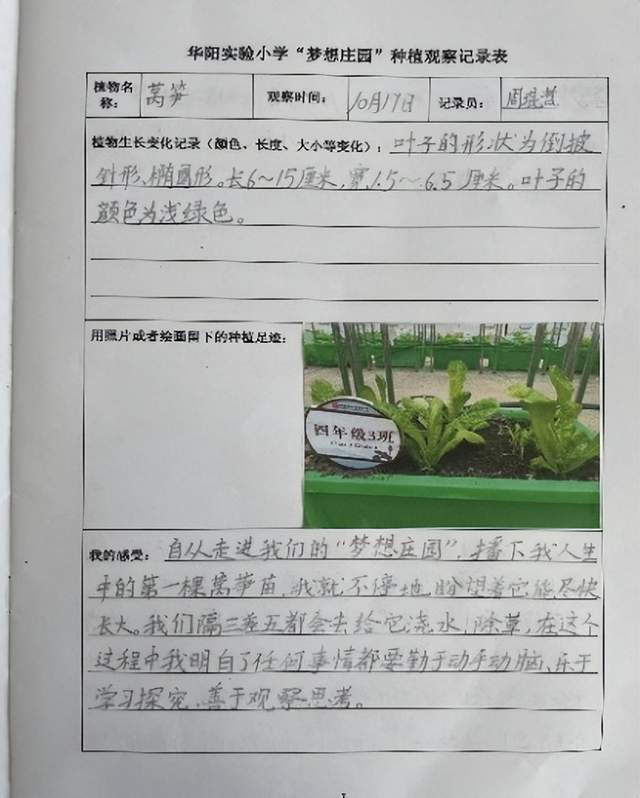 华阳实验小学“梦想庄园”种植观察记录表
植物名称： 莴笋 观察时间： 10月17日 记录员： 周
植物生长变化记录（颜色、长度、大小等变化）：叶子的形状为倒披
针形、椭圆形。长6～15厘米，宽1.5～6.5厘米。叶子的
颜色为浅绿色。
用照片或者绘画留下的种植足迹：
四年级3班
我的感受：自从走进我们的“梦想庄园”，播下我人生
中的第一棵莴笋苗，我就不停地盼望着它能尽快
长大。我们隔三差五都会去给它浇水，除草，在这个
过程中我明白了任何事情都要勤于动手动脑、乐于
学习探究，善于观察思考。